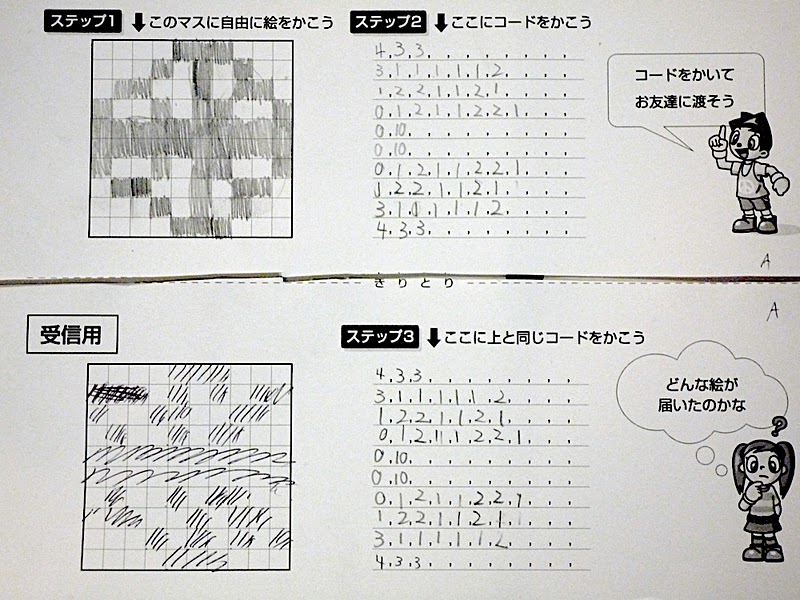 ステップ1 ⬇このマスに自由に絵をかこう
ステップ2 ⬇ここにコードをかこう
4,3,3
3,1,1,1,1,1,2
1,2,2,1,1,2,1
0,1,2,1,1,2,2,1
0,10
0,10
0,1,2,1,1,2,2,1
1,2,2,1,1,2,1
3,1,1,1,1,1,2
4,3,3
コードをかいて
お友達に渡そう
A
きりとり
A
受信用
ステップ3 ⬇ここに上と同じコードをかこう
4,3,3
3,1,1,1,1,1,2
1,2,2,1,1,2,1
0,1,2,1,1,2,2,1
0,10
0,10
0,1,2,1,1,2,2,1
1,2,2,1,1,2,1
3,1,1,1,1,1,2
4,3,3
どんな絵が
届いたのかな
?